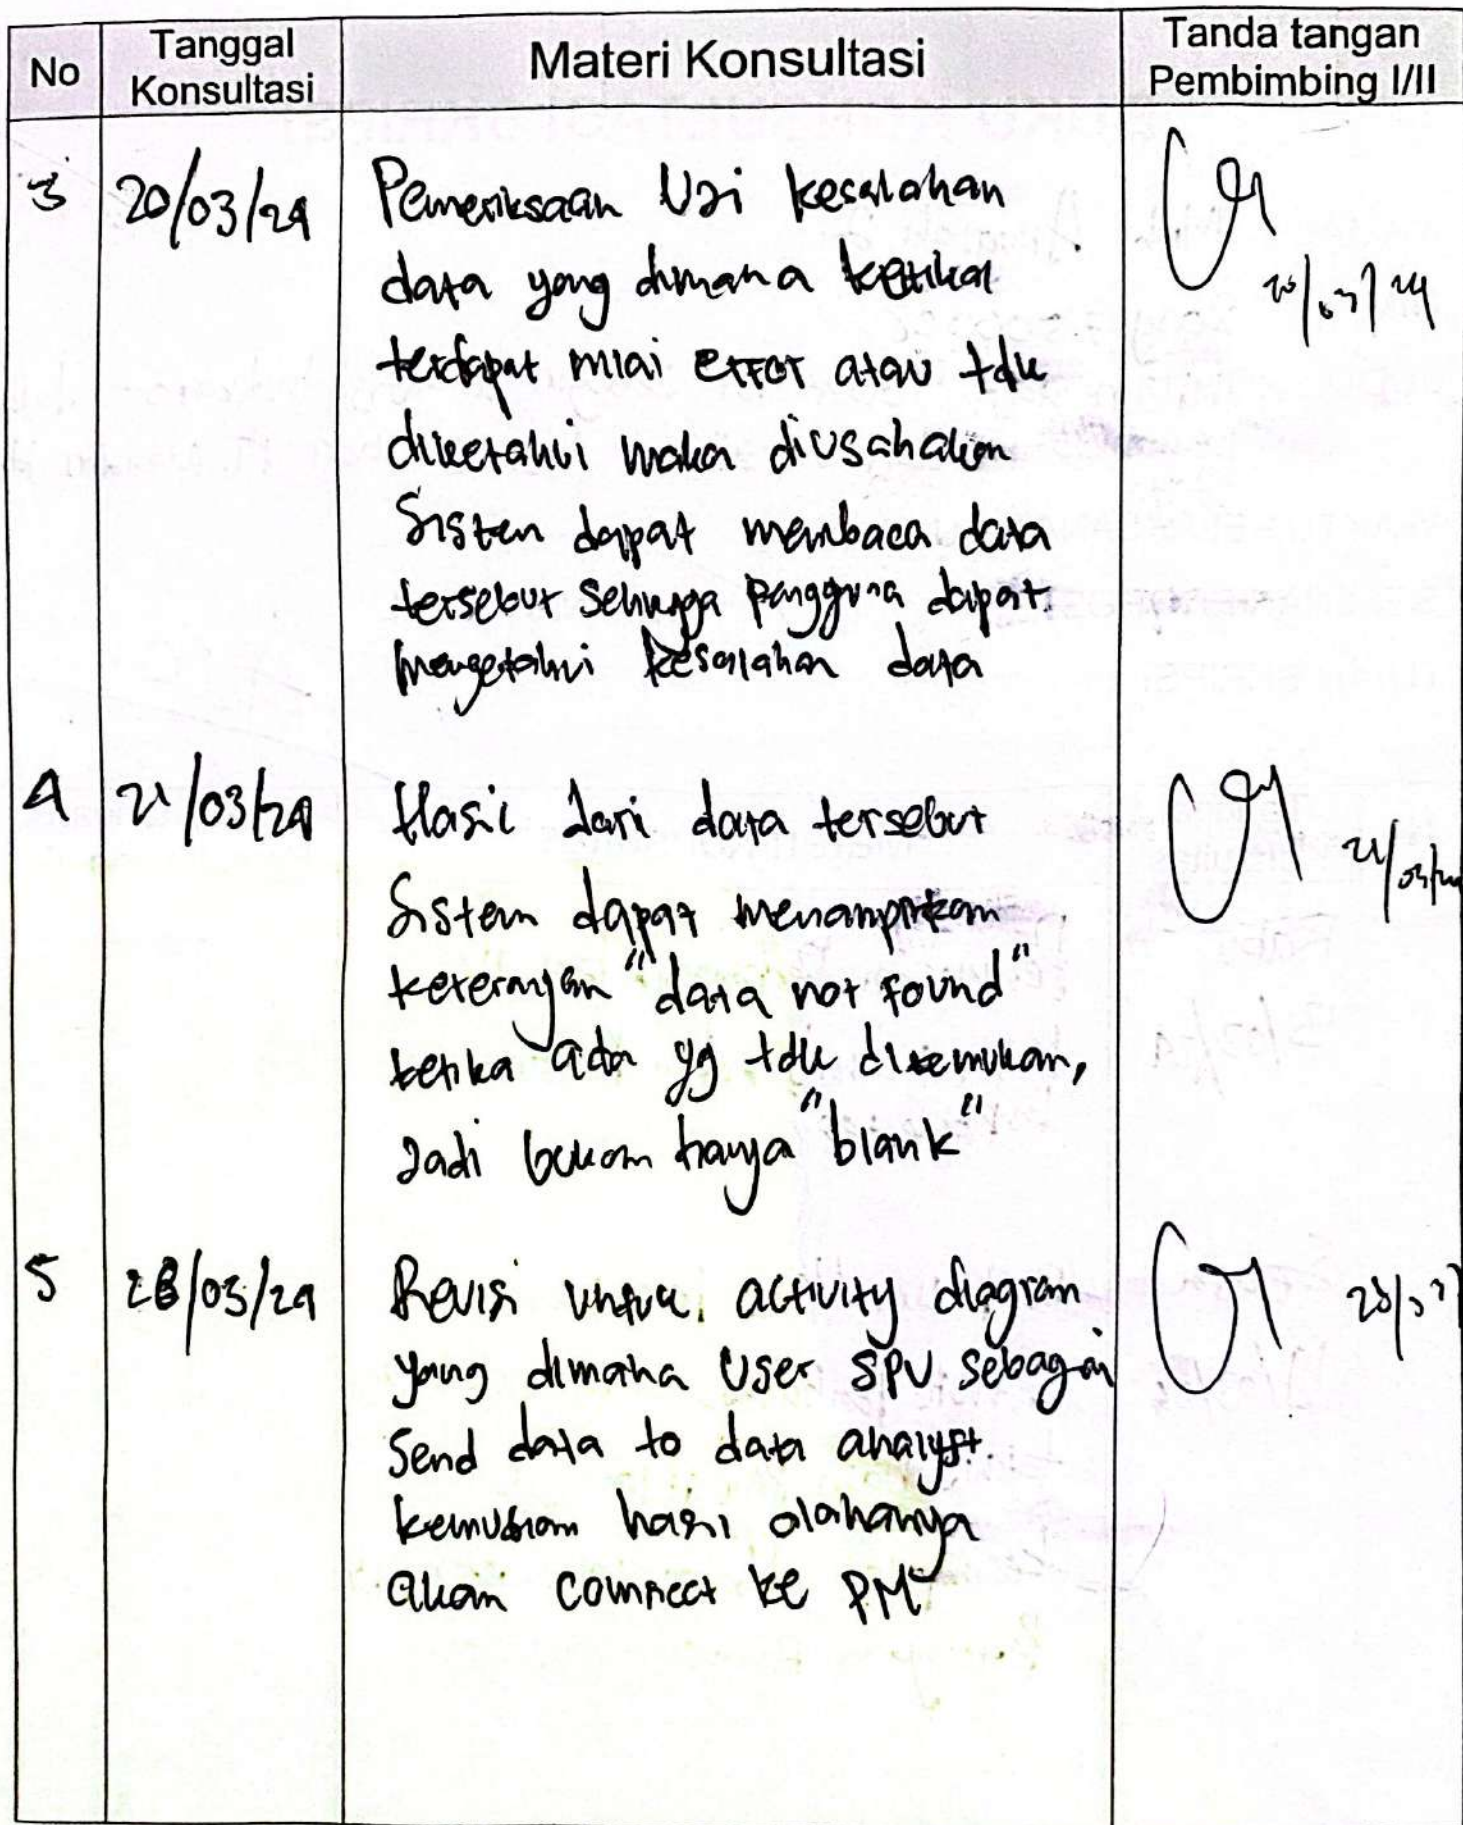 No
Tanggal Konsultasi
Materi Konsultasi
Tanda tangan Pembimbing I/II
3 20/03/24 Pemeriksaan Uji kesalahan 20/03/24
data yang dimana ketika
terdapat nilai error atau tdk
diketahui maka diusahakan
Sistem dapat membaca data
tersebut sehingga pengguna dapat
mengetahui kesalahan data
4 21/03/24 Hasil dari data tersebut 21/03/24
Sistem dapat menampilkan
keterangan "data not found"
ketika ada yg tdk ditemukan,
Jadi bukan hanya "blank"
5 28/03/24 Revisi untuk activity diagram
yang dimana User SPV sebagai
Send data to data analyst.
kemudian hasil olahanya
akan connect ke PM